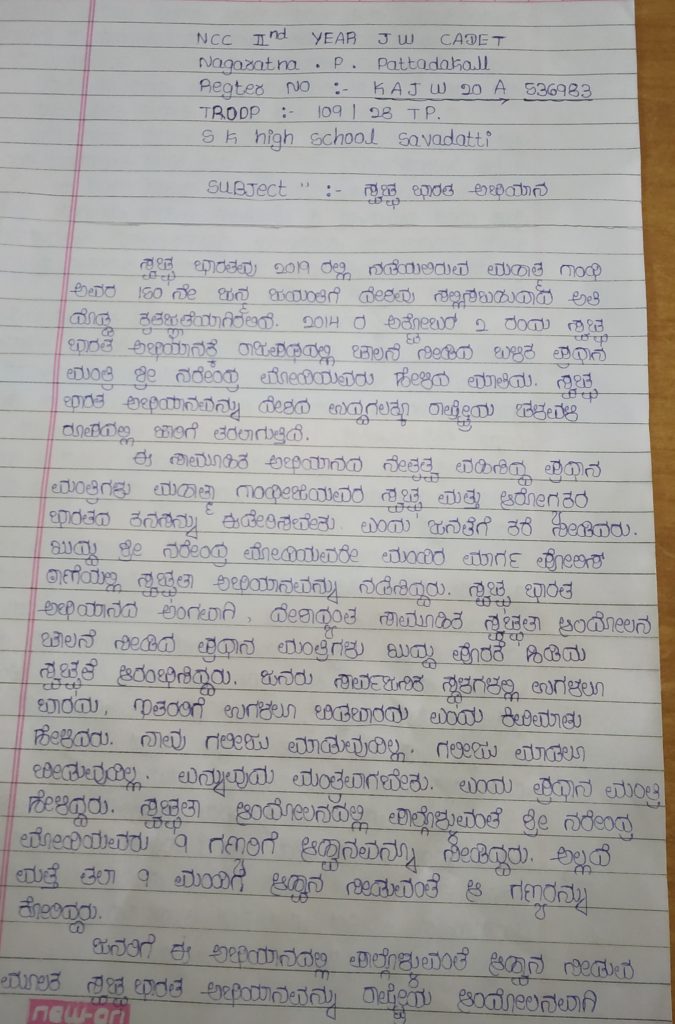 NCC IInd YEAR JW CADET
Nagaratna . P. Pattadakall
Regter NO :- KAJW 20 A 536983
TROOP :- 109 | 28 TP.
S K high school Savadatti
SUBJect " :- ಸ್ವಚ್ಛ ಭಾರತ ಅಭಿಯಾನ
ಸ್ವಚ್ಛ ಭಾರತವು 2019 ರಲ್ಲಿ ನಡೆಯಲಿರುವ ಮಹಾತ್ಮ ಗಾಂಧಿ
ಅವರ 150 ನೇ ಜನ್ಮ ಜಯಂತಿಗೆ ದೇಶವು ಸಲ್ಲಿಸಬಹುದಾದ ಅತಿ
ದೊಡ್ಡ ಕೃತಜ್ಞತೆಯಾಗಿರಲಿದೆ. 2014 ರ ಅಕ್ಟೋಬರ್ 2 ರಂದು ಸ್ವಚ್ಛ
ಭಾರತ ಅಭಿಯಾನಕ್ಕೆ ರಾಜಪಥದಲ್ಲಿ ಚಾಲನೆ ನೀಡಿದ ಬಳಿಕ ಪ್ರಧಾನ
ಮಂತ್ರಿ ಶ್ರೀ ನರೇಂದ್ರ ಮೋದಿಯವರು ಹೇಳಿದ ಮಾತಿದು. ಸ್ವಚ್ಛ
ಭಾರತ ಅಭಿಯಾನವನ್ನು ದೇಶದ ಉದ್ದಗಲಕ್ಕೂ ರಾಷ್ಟ್ರೀಯ ಚಳವಳಿ
ರೂಪದಲ್ಲಿ ಜಾರಿಗೆ ತರಲಾಗುತ್ತಿದೆ.
ಈ ಸಾಮೂಹಿಕ ಅಭಿಯಾನದ ನೇತೃತ್ವ ವಹಿಸಿದ್ದ ಪ್ರಧಾನ
ಮಂತ್ರಿಗಳು ಮಹಾತ್ಮಾ ಗಾಂಧೀಜಿಯವರ ಸ್ವಚ್ಛ ಮತ್ತು ಆರೋಗ್ಯಕರ
ಭಾರತದ ಕನಸನ್ನು ಈಡೇರಿಸಬೇಕು. ಎಂದು ಜನತೆಗೆ ಕರೆ ನೀಡಿದರು.
ಖುದ್ದು ಶ್ರೀ ನರೇಂದ್ರ ಮೋದಿಯವರೇ ಮಂದಿರ ಮಾರ್ಗ ಪೋಲಿಸ್
ಠಾಣೆಯಲ್ಲಿ ಸ್ವಚ್ಛತಾ ಅಭಿಯಾನವನ್ನು ನಡೆಸಿದ್ದರು. ಸ್ವಚ್ಛ ಭಾರತ
ಅಭಿಯಾನದ ಅಂಗವಾಗಿ, ದೇಶಾದ್ಯಂತ ಸಾಮೂಹಿಕ ಸ್ವಚ್ಛತಾ ಆಂದೋಲನ
ಚಾಲನೆ ನೀಡಿದ ಪ್ರಧಾನ ಮಂತ್ರಿಗಳು ಖುದ್ದು ಪೊರಕೆ ಹಿಡಿದು
ಸ್ವಚ್ಛತೆ ಆರಂಭಿಸಿದ್ದರು. ಜನರು ಸಾರ್ವಜನಿಕ ಸ್ಥಳಗಳಲ್ಲಿ ಉಗಳಲೂ
ಬಾರದು, ಇತರರಿಗೆ ಉಗಳಲೂ ಬಿಡಬಾರದು ಎಂದು ಕಿವಿಮಾತು
ಹೇಳಿದರು. ನಾವು ಗಲೀಜು ಮಾಡುವುದಿಲ್ಲ. ಗಲೀಜು ಮಾಡಲೂ
ಬಿಡುವುದಿಲ್ಲ. ಎನ್ನುವುದು ಮಂತ್ರವಾಗಬೇಕು. ಎಂದು ಪ್ರಧಾನ ಮಂತ್ರಿ
ಹೇಳಿದ್ದರು. ಸ್ವಚ್ಛತಾ ಆಂದೋಲನದಲ್ಲಿ ಪಾಲ್ಗೊಳ್ಳುವಂತೆ ಶ್ರೀ ನರೇಂದ್ರ
ಮೋದಿಯವರು 9 ಗಣ್ಯರಿಗೆ ಆಹ್ವಾನವನ್ನು ನೀಡಿದ್ದರು. ಅಲ್ಲದೆ
ಮತ್ತೆ ತಲಾ 9 ಮಂದಿಗೆ ಆಹ್ವಾನ ನೀಡುವಂತೆ ಆ ಗಣ್ಯರನ್ನು
ಕೋರಿದ್ದರು.
ಜನರಿಗೆ ಈ ಅಭಿಯಾನದಲ್ಲಿ ಪಾಲ್ಗೊಳ್ಳುವಂತೆ ಆಹ್ವಾನ ನೀಡುವ
ಮೂಲಕ ಸ್ವಚ್ಛ ಭಾರತ ಅಭಿಯಾನವನ್ನು ರಾಷ್ಟ್ರೀಯ ಆಂದೋಲನವಾಗಿ